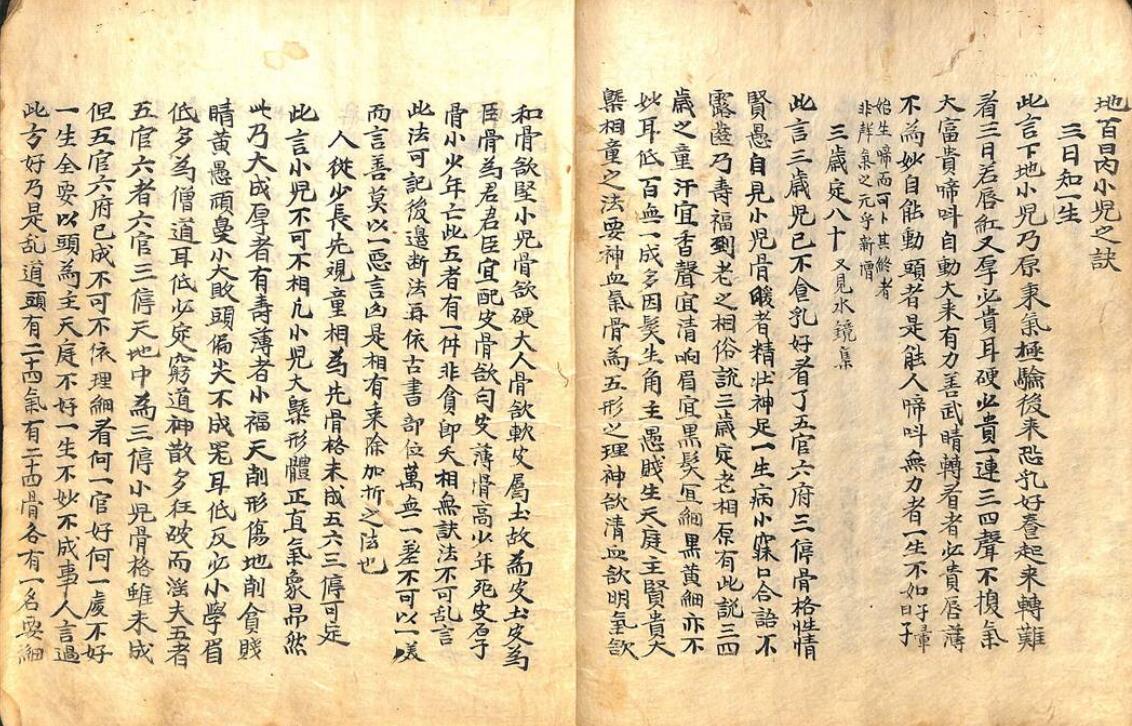 地百日內小兒之訣
三日知一生
此言下地小兒乃原秉氣極驗後來恐乳好養起來轉難
着三日若唇紅又厚必貴耳硬必貴一連三四聲不換氣
大富貴啼呌自動大来有力善武睛轉者者必貴唇薄
不為妙自能動頭者是能人啼呌無力者一生不如日子
始生啼而可卜其終者
非鮮氣之元乎新增
三歲定八十 又見水鏡集
此言三歲児已不食乳好看了五官六府三停骨格性情
賢愚自見小児骨暖者精壮神足一生病小寐口合語不
露齒乃壽福到老之相俗説三歲定老相原有此説三四
歲之童汗宜香聲宜清响眉宜黒髪宜細黒黄細亦不
妙耳低百無一成多因髪生角主愚賤生天庭主賢貴大
槩相童之法要神血氣骨為五形之理神欲清血欲明氣欲
和骨欲堅小児骨欲硬大人骨欲軟皮屬土故為皮土皮為
臣骨為君君臣宜配皮骨欲勻皮薄骨高少年死皮厚
骨小少年亡此五者有一件非貪即夭相無訣法不可乱言
此法可記後邉断法再依古書部位萬無一差不可以一美
而言善莫以一惡言凶是相有乗除加折之法也
人從少長先視童相為先骨格未成五六三停可定
此言小児不可不相凢小児大槩形體正直氣象昂然
此乃大成厚者有壽薄者小福天削形傷地削貪賤
睛黄愚頑𡲬小大敗頭偏尖不成噐耳低反必小學眉
低多為僧道耳低必定窮道神散多狂破而滛夫五者
五官六者六官三停天地中為三停小児骨格雖未成
但五官六府已成不可不依理細看何一官好何一處不好
一生全要以頭為主天庭不好一生不妙不成事人言過
此方好乃是乱道頭有二十四氣有二十四骨各有一名要細